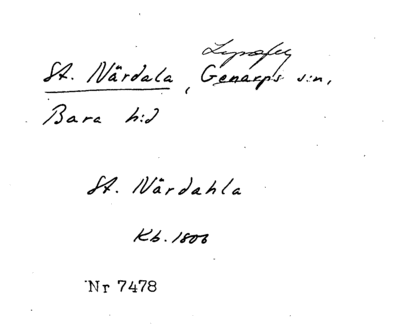 St. Närdala, Genarps s:n,
Bara h:d
St. Närdahla
Kb. 1806
Nr 7478